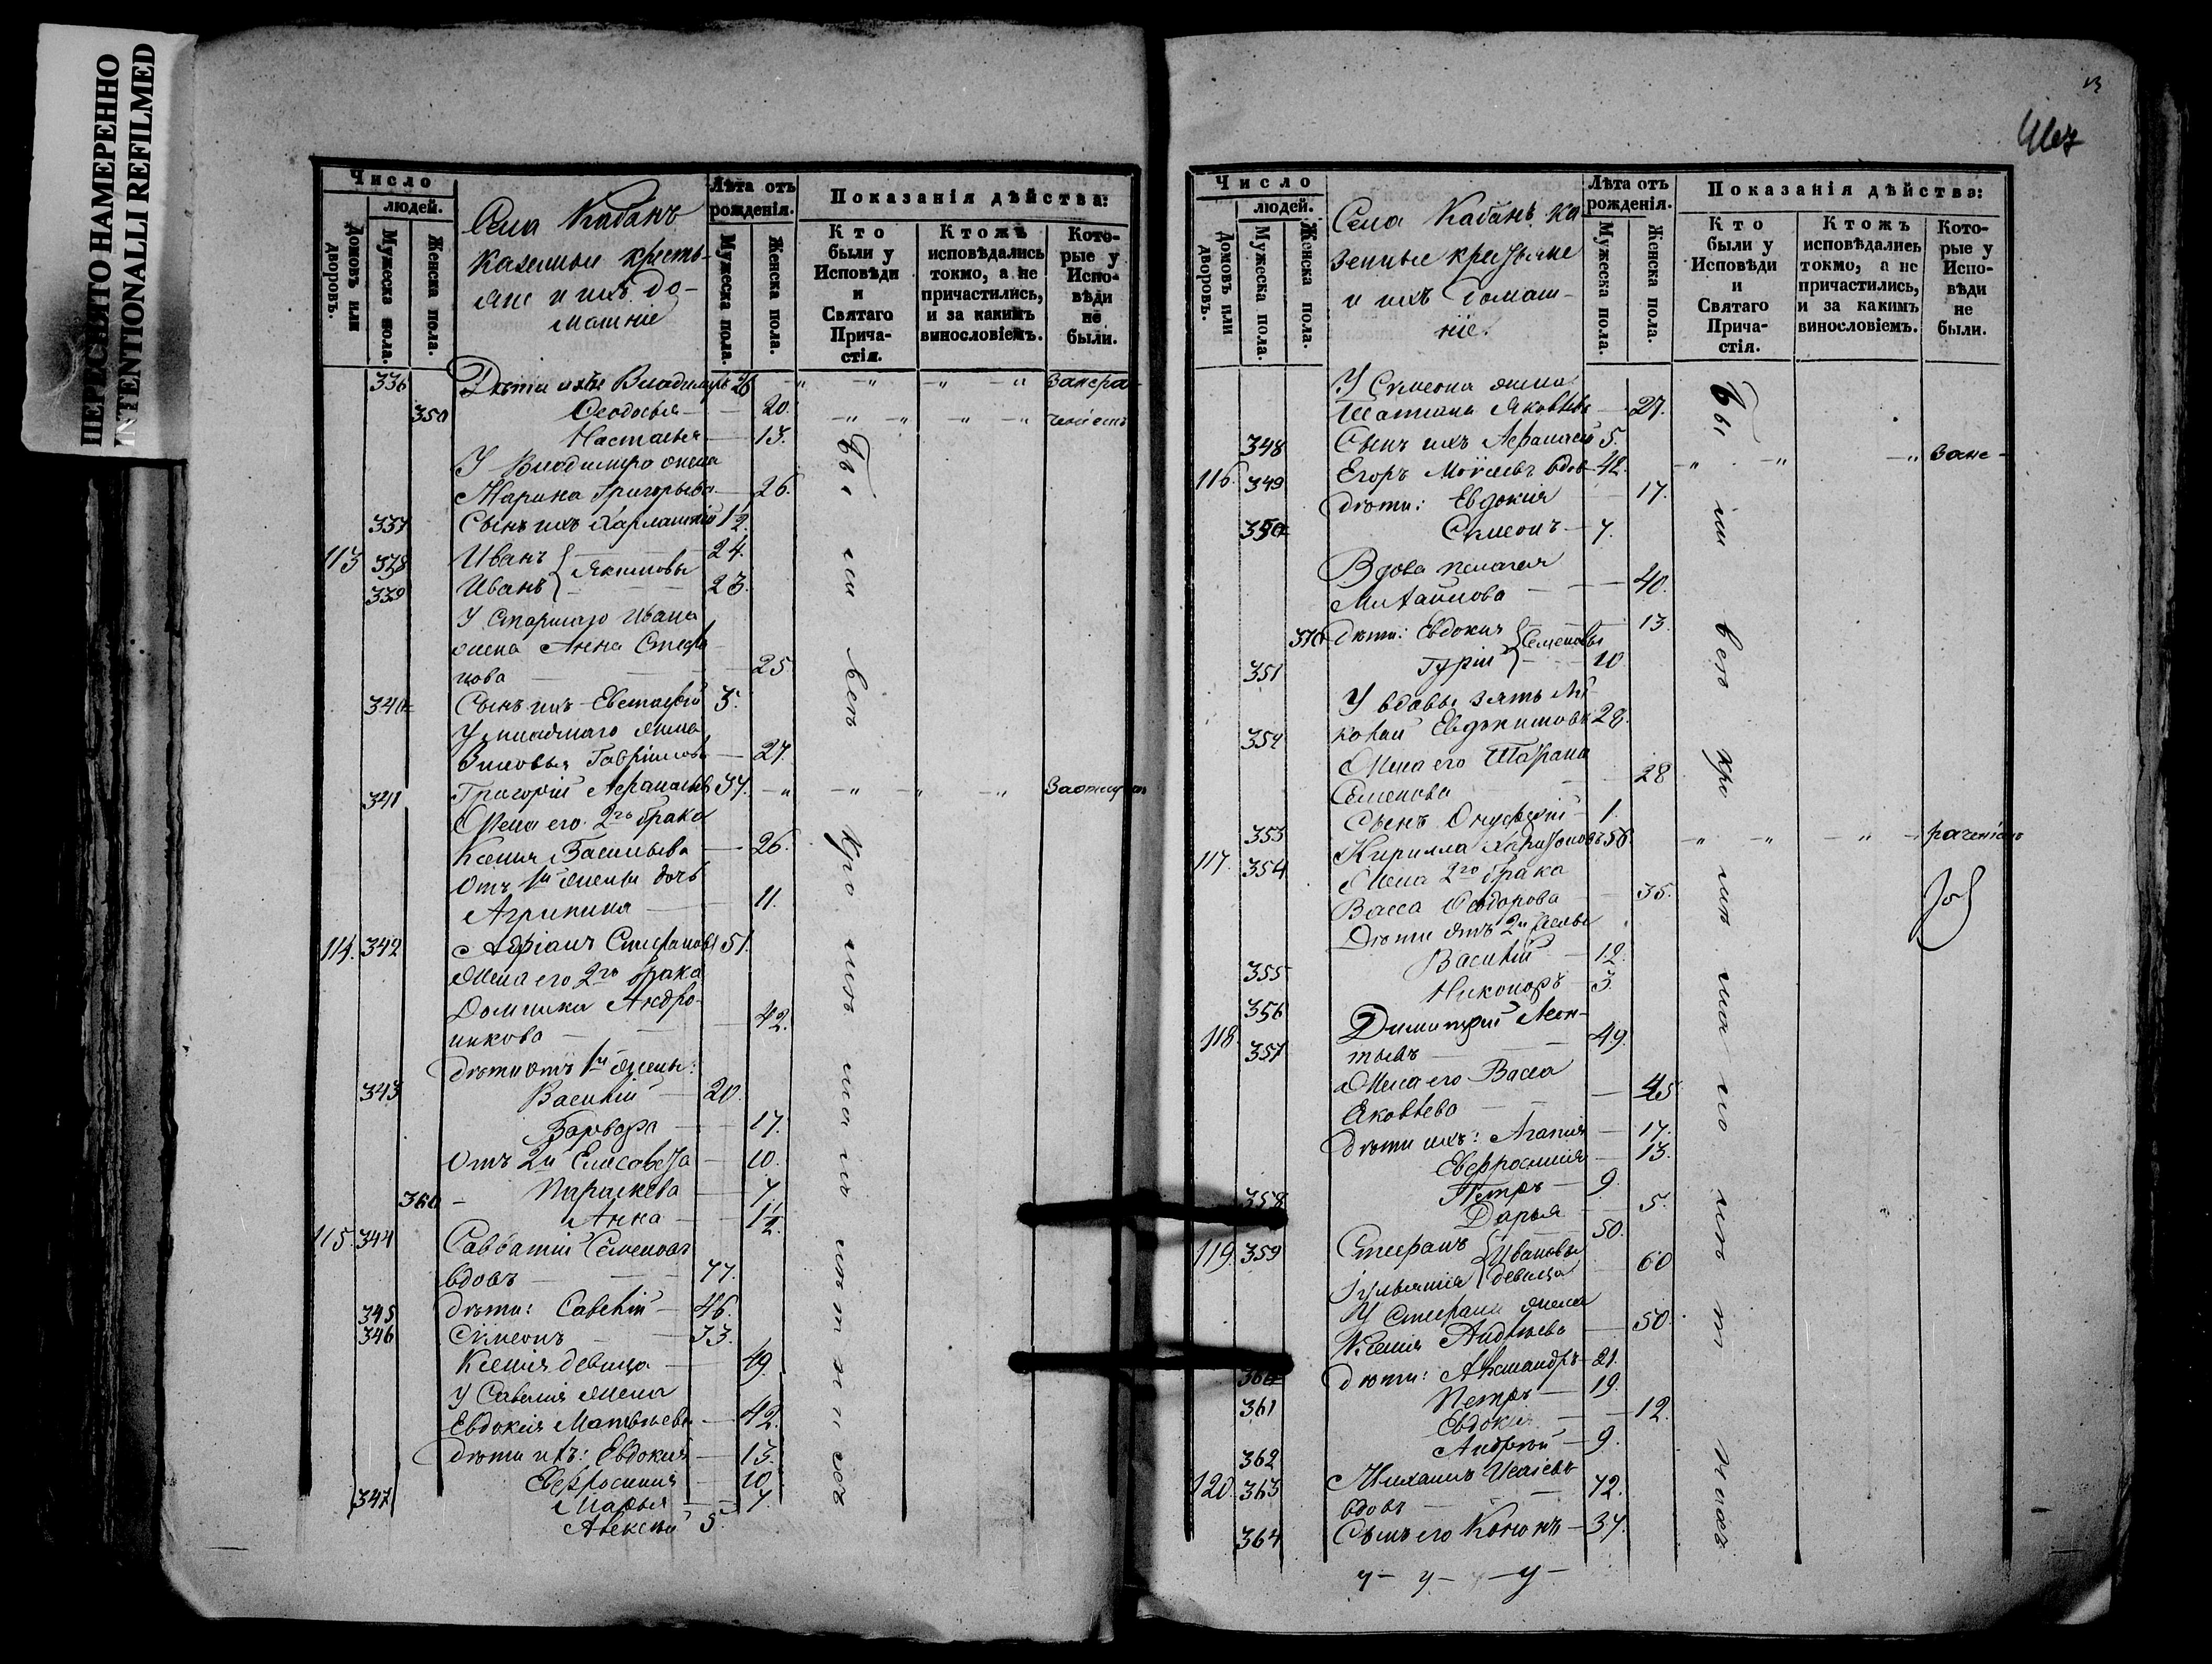 ПЕРЕСНЯТО НАМЕРЕННО
INTENTIONALLI REFILMED
Число
людей.
Домовъ или дворовъ.
Мужеска пола.
Женска пола.
Села Кабанъ
казенные кресть-
яне и ихъ до-
машніе
Лѣта отъ рожденія.
Мужеска пола.
Женска пола.
Показанія дѣйства:
Кто были у Исповѣди и Святаго Прича-стія.
Ктожъ исповѣдались токмо, а не причастились, и за какимъ винословіемъ.
Кото-рые у Испо-вѣди не были.
336 Дѣти ихъ Владимиръ 26
350 Ѳеодосья 20.
Настасья 13.
У Владимира жена
Марина Григорьева 26.
337 Сынъ ихъ Харлампій 1½
113 338 Иванъ } Якимовы 24.
339 Иванъ 23.
У старшаго Ивана
жена Анна Стефа-
нова 25
340 Сынъ ихъ Евстафій 3.
У младшаго жена
Зиновья Гавріилова 27.
341 Григорій Афанасьевъ 37. За отлуч
Жена его 2го брака
Ксенія Васильева 26.
Отъ 1й жены дочь
Агрипина 11.
114. 342 Адріанъ Стефановъ 51.
Жена его 2го брака
Домника Андро-
никова 42.
дѣти отъ 1й жены:
343 Василій 20.
Варвара 17.
Отъ 2й Елисавета 10.
360 Параскева 7
Анна 1½
115. 344 Савватій Семеновъ
вдовъ 77.
345 дѣти: Савелій 46.
346 Симеонъ 33.
Ксенія девица 49.
У Савелія жена
Евдокія Матвѣева 42.
дѣти ихъ: Евдокія 13.
Евфросинія 10.
Марья 7
347 Алексѣй 5.
Были вси кромѣ малолѣтниковъ
Число
людей.
Домовъ или дворовъ.
Мужеска пола.
Женска пола.
Села Кабанъ ка
зенные крестьяне
и ихъ домаш-
ніе.
Лѣта отъ рожденія.
Мужеска пола.
Женска пола.
Показанія дѣйства:
Кто были у Исповѣди и Святаго Прича-стія.
Ктожъ исповѣдались токмо, а не причастились, и за какимъ винословіемъ.
Кото-рые у Испо-вѣди не были.
У Симеона жена
Татіана Яковлева 27.
348 Сынъ ихъ Афанасій 5.
116. 349 Егоръ Моѵсеевъ вдов 42. За не-
дѣти: Евдокія 17.
350 Симеонъ 7.
Вдова Пелагея
Михайлова 40.
370 дѣти: Евдокія } Семеновы 13.
351 Гурій 10
У вдовы зять Ни
352 колай Евдокимовъ 28.
Жена его Татіана
Семенова 28
353 Сынъ Онуфрій 1.
117. 354 Кирилла Харитоновъ 56. раченіемъ
Жена 2го брака
Васса Ѳедорова 35.
Дѣти отъ 2й жены
355 Василій 12.
356 Никоноръ 3.
118. Димитрій Леон-
357 тьевъ 49.
Жена его Васса
Яковлева 45
дѣти ихъ: Агапія 17.
Евфросинія 13.
358 Петръ 9
Дарья 5.
119. 359 Стефанъ } Ивановы 50.
Іульянія } девица 60
У Стефана жена
Ксенія Андреева 50
360 дѣти: Александръ 21.
361 Петръ 19.
Евдокія 12.
362 Андрей 9.
120. 363 Михаилъ Исаіевъ
вдовъ 72.
364 Сынъ его Кононъ 37.
Были вси кромѣ малолѣтниковъ